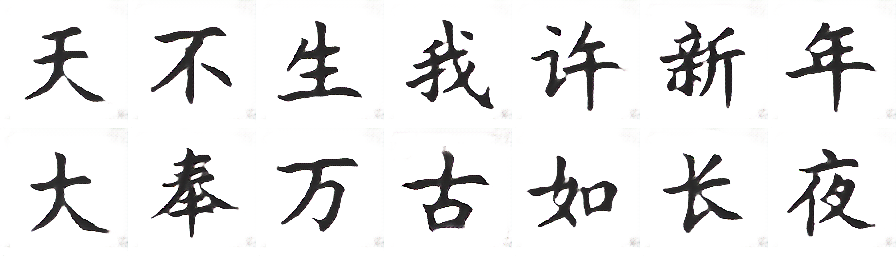 天不生我许新年
大奉万古如长夜